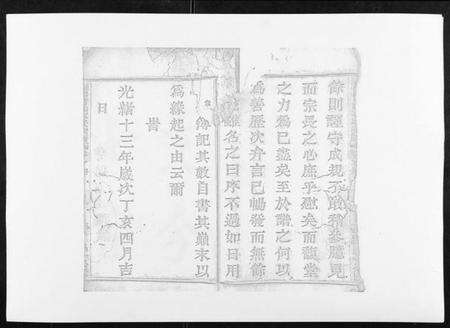 餘則謹守成規不敢稍參臆見
而宗長之心庶乎慰矣而顯堂
之力為已盡矣至於譜之何以
為善歷次弁言已暢發而無餘
名之曰序不過如日用
簿記其數自書其巔末以
為緣起之由云爾
旹
光緒十三年歲次丁亥四月吉
日